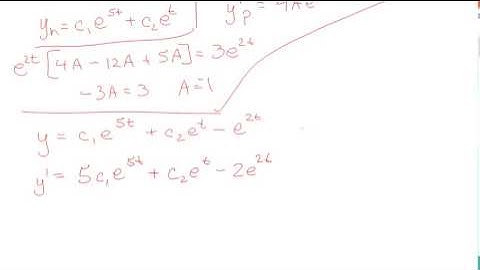 yₕ = c₁e^{5t} + c₂e^{t}
y''ₚ = 4Ae
e^{2t} [4A − 12A + 5A] = 3e^{2t}
−3A = 3 A = -1
y = c₁e^{5t} + c₂e^{t} − e^{2t}
y' = 5c₁e^{5t} + c₂e^{t} − 2e^{2t}